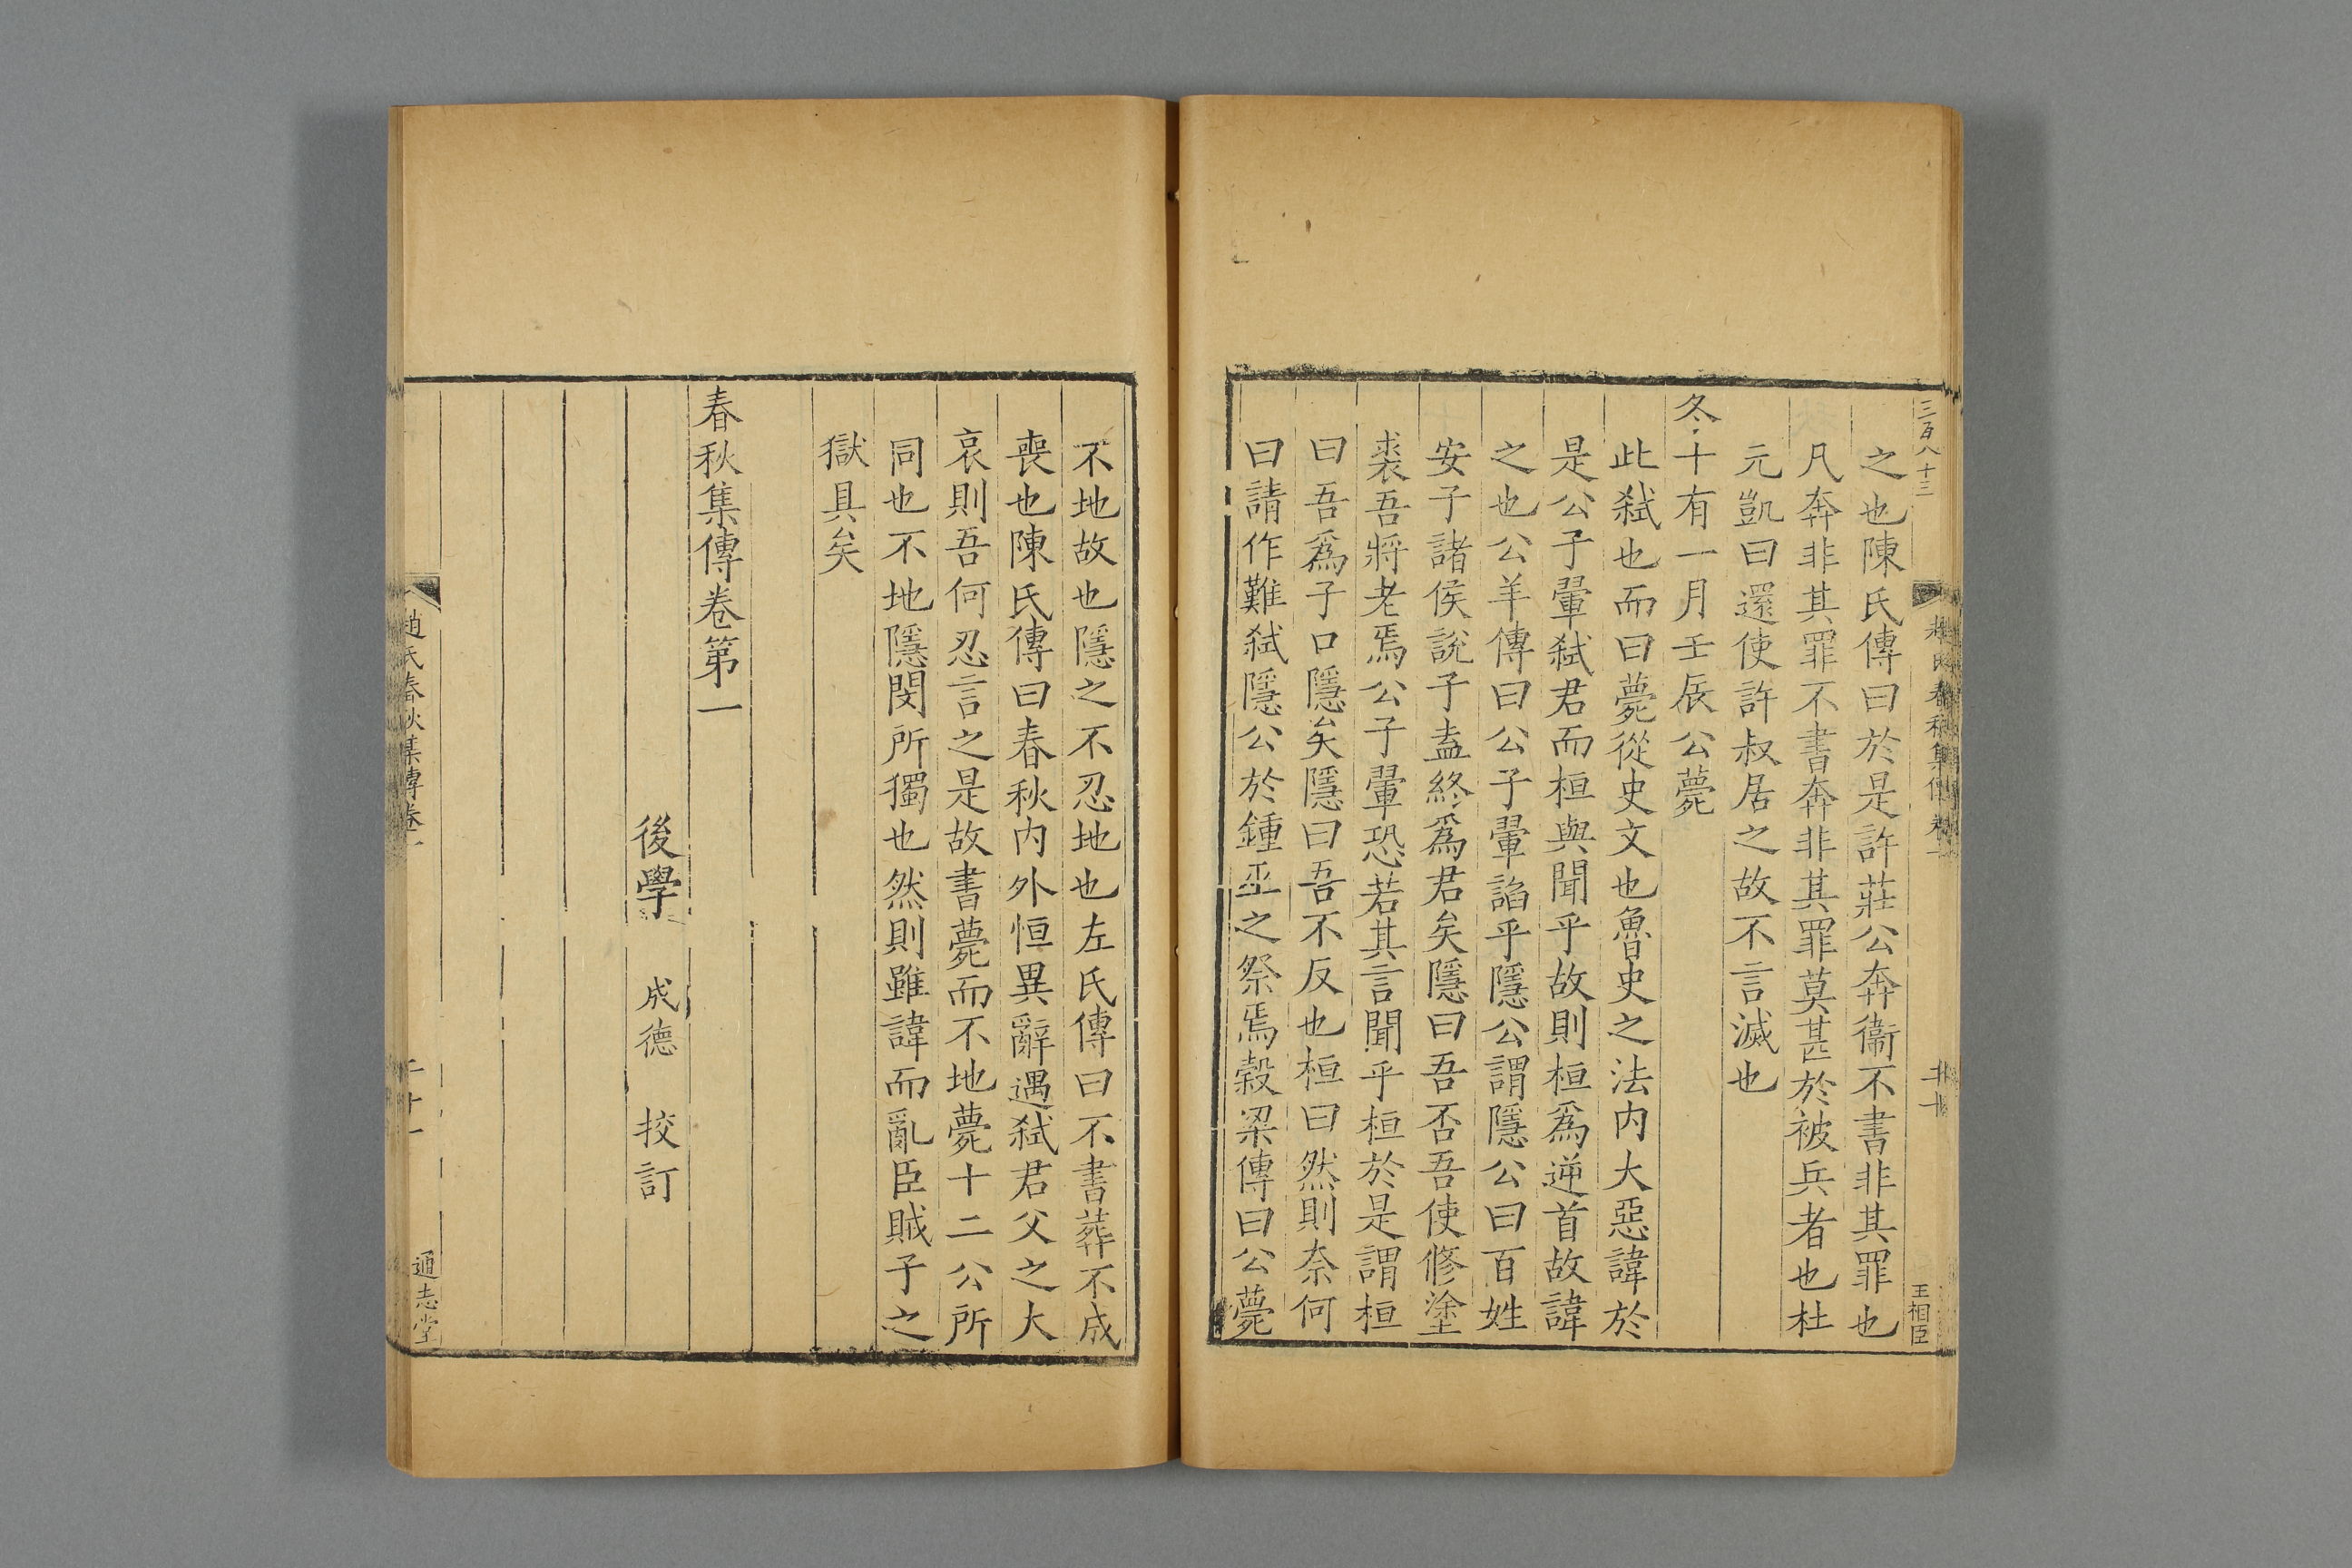 三百八十三
之也陳氏傳曰於是許莊公奔衞不書非其罪也
凡奔非其罪不書奔非其罪莫甚於被兵者也杜
元凱曰還使許叔居之故不言滅也
冬十有一月壬辰公薨
此弑也而曰薨從史文也魯史之法内大惡諱於
是公子翬弑君而桓與聞乎故則桓爲逆首故諱
之也公羊傳曰公子翬謟乎隱公謂隱公曰百姓
安子諸侯說子盍終爲君矣隱曰吾否吾使修塗
裘吾將老焉公子翬恐若其言聞乎桓於是謂桓
曰吾爲子口隱矣隱曰吾不反也桓曰然則奈何
曰請作難弑隱公於鍾巫之祭焉榖梁傳曰公薨
王相臣
不地故也隱之不忍地也左氏傳曰不書葬不成
喪也陳氏傳曰春秋内外恒異辭遇弑君父之大
哀則吾何忍言之是故書薨而不地薨十二公所
同也不地隱閔所獨也然則雖諱而亂臣賊子之
獄具矣
春秋集傳卷第一
後學 成德 挍訂
趙氏春秋集傳卷一
二十一
通志堂